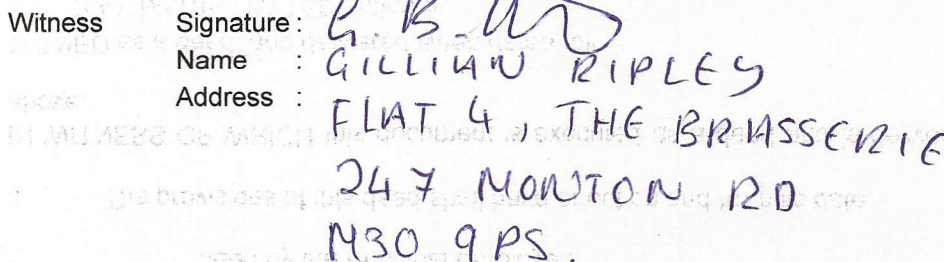 Witness Signature :
Name : GILLIAN RIPLEY
Address : FLAT 4, THE BRASSERIE
247 MONTON RD
M30 9PS.